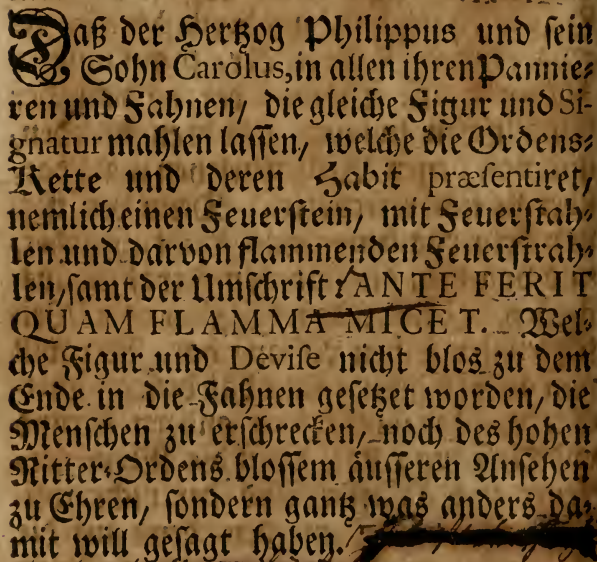 Daß der Hertzog Philippus und sein
Sohn Carolus, in allen ihren Pannie-
ren und Fahnen/ die gleiche Figur und Si-
gnatur mahlen lassen/ welche die Ordens-
Kette und deren Habit præsentiret,
nemlich einen Feuerstein/ mit Feuerstah-
len und darvon flammenden Feuerstrah-
len/ samt der Umschrift: ANTE FERIT
QUAM FLAMMA MICET. Wel-
che Figur und Devise nicht blos zu dem
Ende in die Fahnen gesetzet worden/ die
Menschen zu erschrecken/ noch des hohen
Ritter-Ordens blossem äusseren Ansehen
zu Ehren/ sondern gantz was anders da-
mit will gesagt haben.